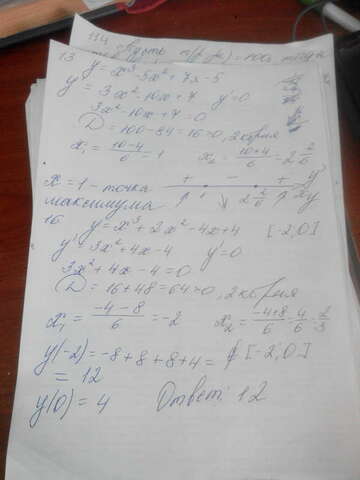 114 Пусть
13 y = x³-5x²+7x-5
y' = 3x²-10x+7 y'=0
3x²-10x+7=0
D = 100-84=16>0, 2 корня
x₁ = (10-4)/6 = 1 x₂ = (10+4)/6 = 2 2/6
x=1 - точка + - + y'
максимума 1 2 2/6 y
16 y = x³+2x²-4x+4 [-2;0]
y' = 3x²+4x-4 y'=0
3x²+4x-4=0
D = 16+48=64>0, 2 корня
x₁ = (-4-8)/6 = -2 x₂ = (-4+8)/6 = 4/6 = 2/3
y(-2) = -8+8+8+4 = ∉ [-2;0]
= 12
y(0) = 4 Ответ: 12